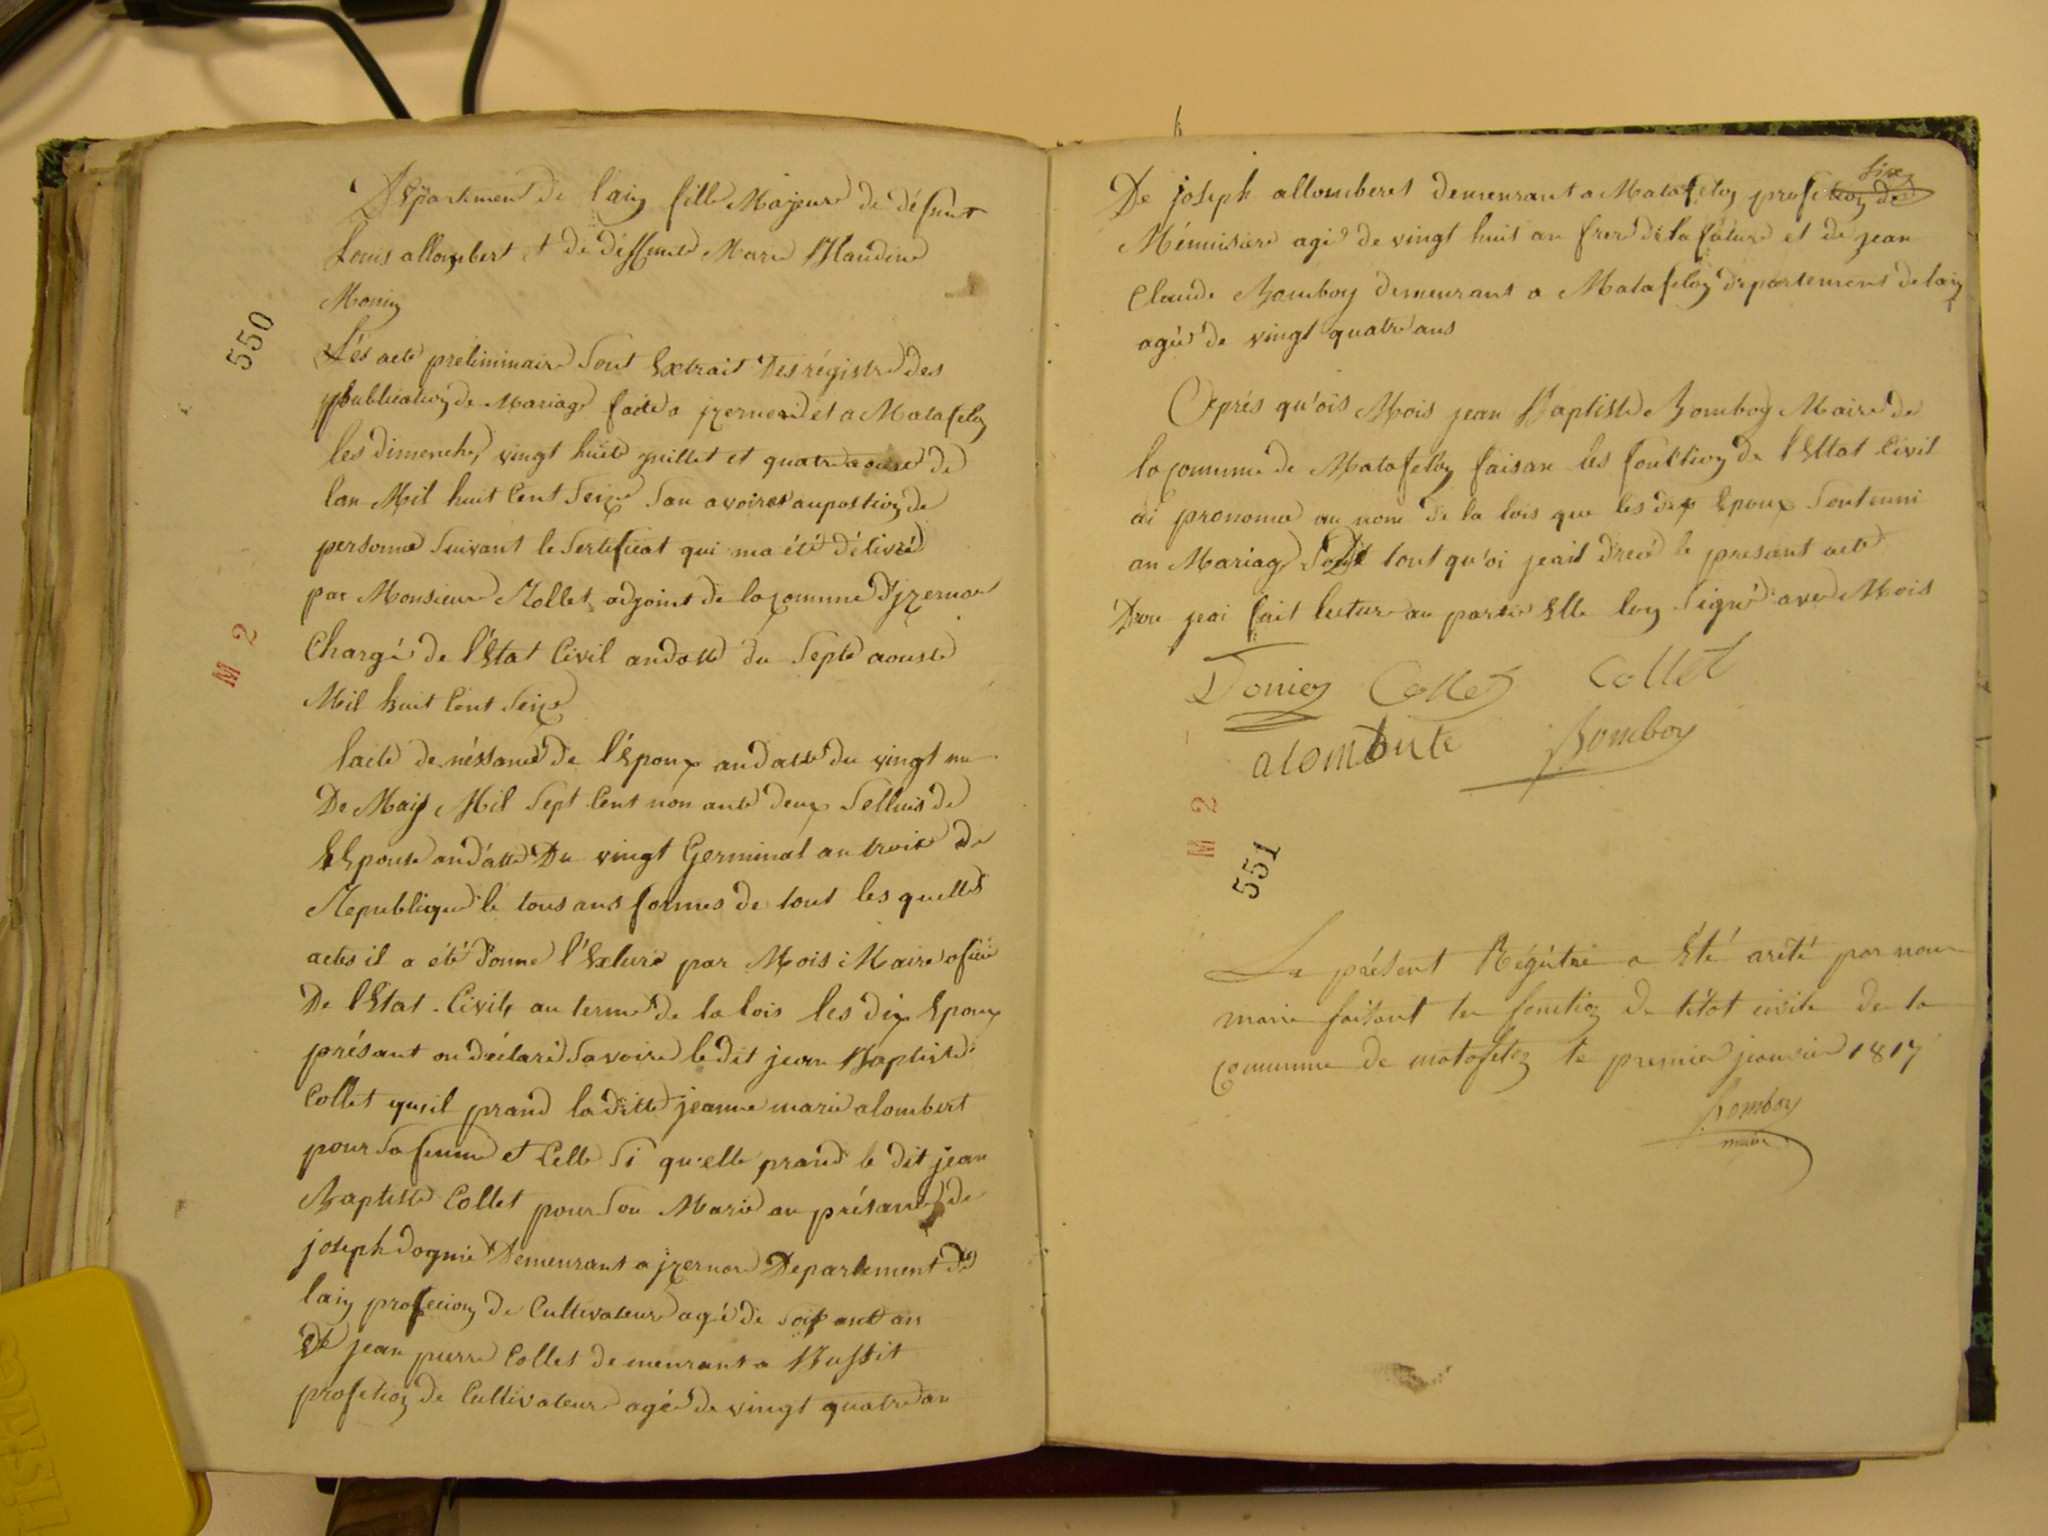 Département de l'ain fille Majeure de défunt
Louis allombert et de deffunte Marie Claudine
Monin
550
Lés acte preliminaire Sont Extrait Des régistre des
publication de Mariage faite a jzernore et a Matafelon
les dimenche vingt huite juillet et quatre aouste de
lan Mil huit Cent Seize San avoire aupostion de
personne Suivant le Sertificat qui ma été délivré
par Monsieur Rollet adjoint de la commune d'jzernore
Chargé de l'Etat Civil andatte du Septe aouste
M 2
Mil huit Cent Seize
lacte de néssance de l'Epoux andatte du vingt un
De Maij Mil Sept Cent non ante deux Selluis de
LEpouse andatte Du vingt Germinal an troise de
Republique le tous ans formes de tout les quelles
actes il a été donne l'Exture par Mois Maire ofisié
De l'Etat Civile au terme de la lois les dix Epoux
présant on déclaré Savoire le dit jean Baptiste
Collet qu'sil prand laditte jeanne marie alombert
pour Sa femme et Celle Si qu'elle prand le dit jean
Baptiste Collet pour Son Marie an présance de
joseph dognié Demeurant a jzernore Departement de
lain profecion de Cultivateur agé de Soix ante an
De jean pierre Collet demeurant a Bussit
profetion de Cultivateur agée de vingt quatre an
De joseph allomberet demeurant a Matafelon profetion de
Ménuisiere agé de vingt huit an frere de la future et de jean
Claude Bomboy demeurant a Matafelon departement de lain
agée de vingt quatre ans
Oprés qu'ois Mois jean Baptiste Bomboy Maire de
la comune de Matafellon faisan les fonction de l'Etat Civil
ai prononce au nom de la lois que les dix Epoux Sont uni
an Mariage De tout qu'oi jeait drecé le presant acte
Don jeai fait lecture au partie Elle lon Signé avec Mois
Collet Collet
alomberte Bomboy
M 2
551
Le présent Régitre a Eté arété par nous
maire faisant les fonction de létat civile de la
commune de matafelon le premier janvier 1817
Bomboy
maire